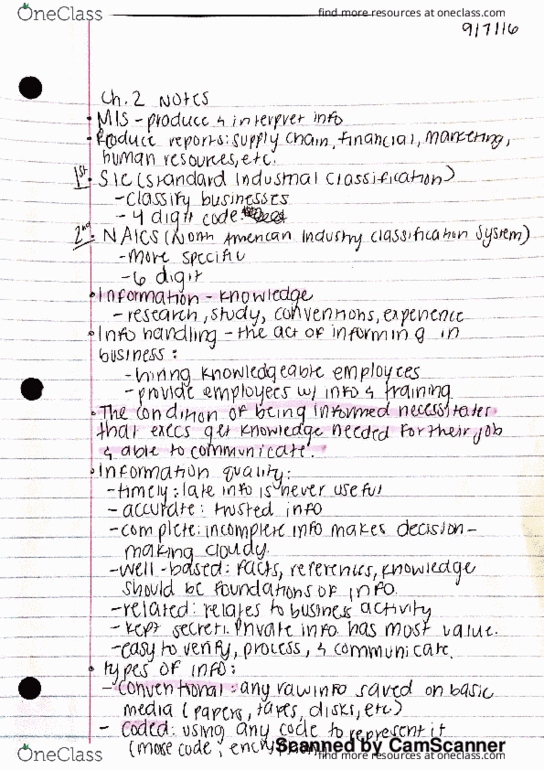 OneClass
find more resources at oneclass.com
9/7/16
Ch. 2 Notes
• MIS - produce & interpret info
• Produce reports: supply chain, financial, marketing,
human resources, etc.
1st • SIC (Standard Industrial Classification)
- classify businesses
- 4 digit code
2nd • NAICS (North American Industry Classification System)
- more specific
- 6 digit
• Information - knowledge
- research, study, conventions, experience
• Info handling - the act of informing in
business:
- hiring knowledgeable employees
- provide employees w/ info & training
• The condition of being informed necessitates
that execs get knowledge needed for their job
& able to communicate.
• Information quality:
- timely: late info is never useful
- accurate: trusted info
- complete: incomplete info makes decision-
making cloudy.
- well-based: facts, references, knowledge
should be foundations of info.
- related: relates to business activity
- kept secret: Private info has most value.
- easy to verify, process, & communicate.
• types of info:
- conventional: any raw info saved on basic
media (papers, tapes, disks, etc)
- coded: using any code to represent it
(morse code, 
Scanned by CamScanner
OneClass
find more resources at oneclass.com